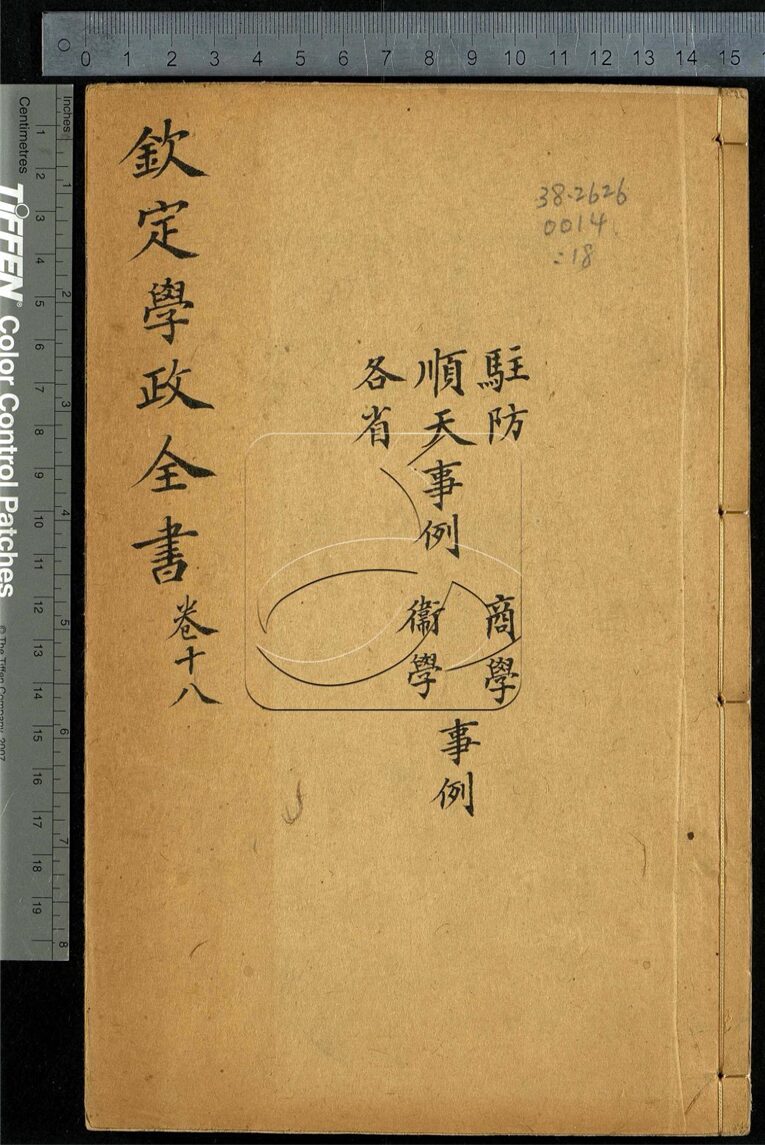 欽定學政全書卷十八
駐防
順天事例
各省
商學
衞學
事例
38-2626
0014
:18
0 1 2 3 4 5 6 7 8 9 10 11 12 13 14 15
Inches
1 2 3 4 5 6 7 8
Centimetres
1 2 3 4 5 6 7 8 9 10 11 12 13 14 15 16 17 18 19
TIFFEN® Color Control Patches
© The Tiffen Company, 2007